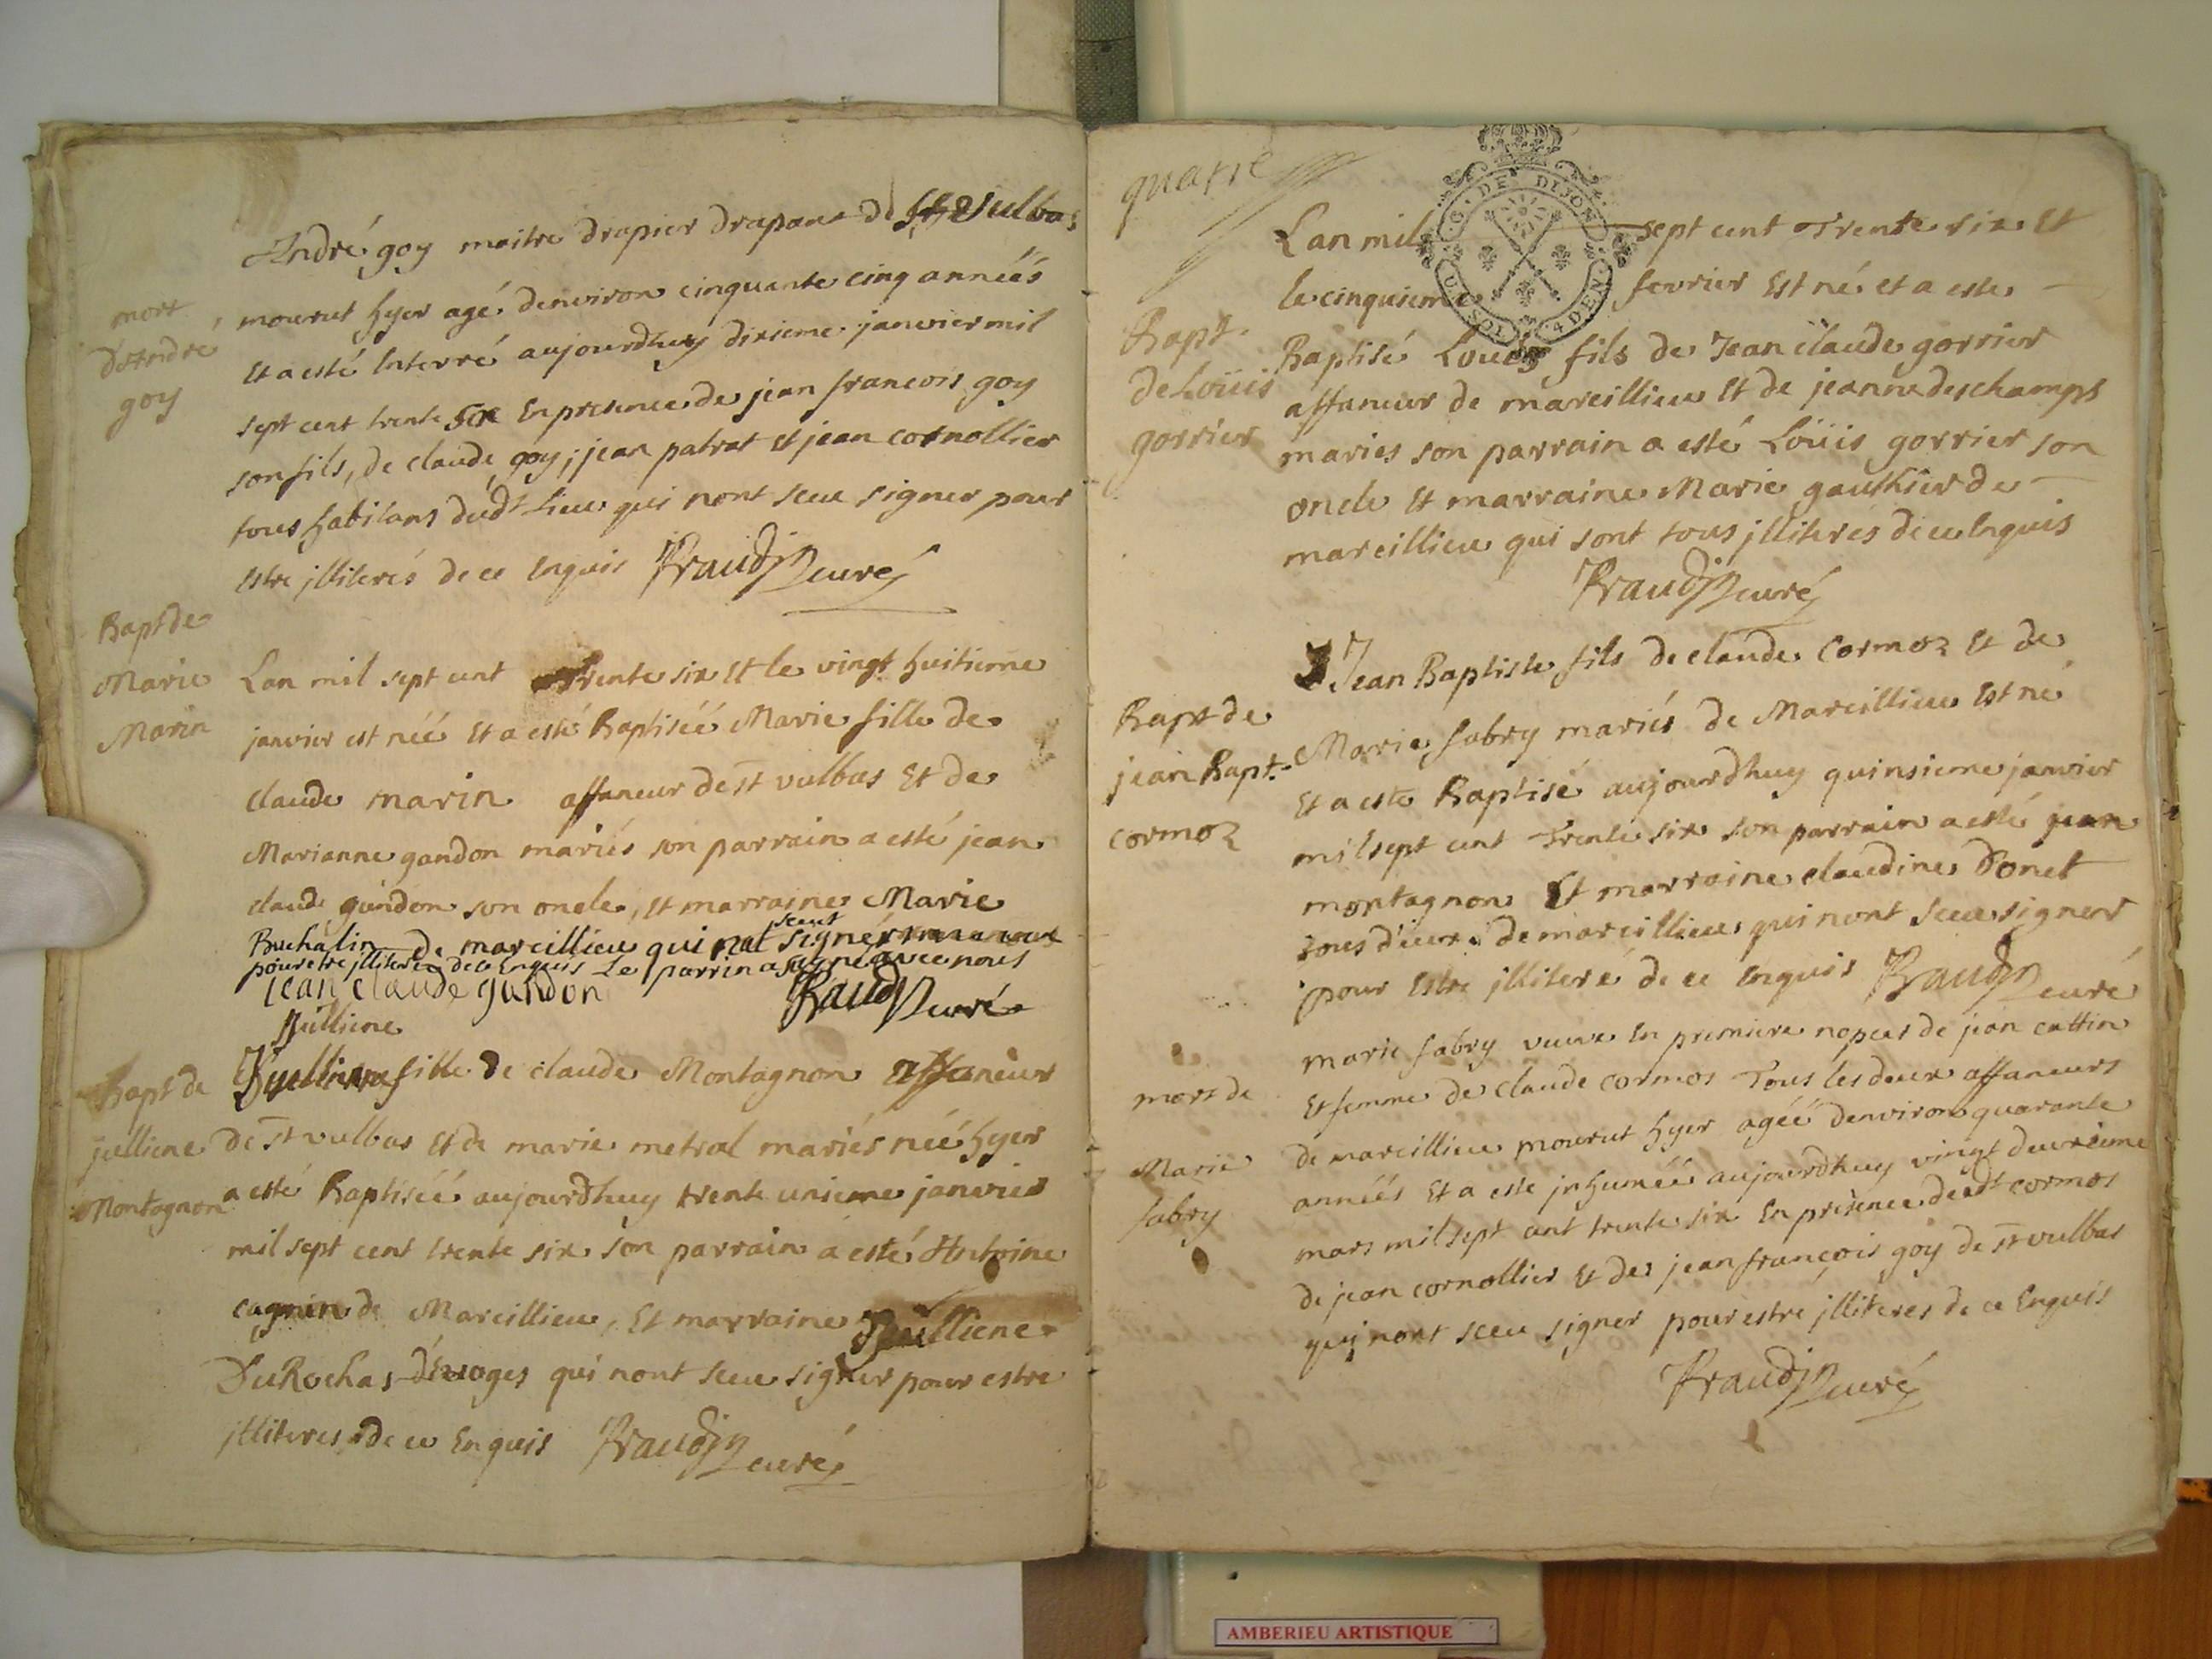 mort
d'André
goy
André goy maitre drapier drapant de St Vulbas
mourut hyer agé denviron cinquante cinq annéés
Et a esté Enterré aujourdhuy dixieme janvier mil
sept cent trente six En presence de jean francois goy
son fils, de claude goy, jean patrat Et jean cornollier
tous habitans dudt Lieu qui nont sceu signer pour
Estre jlliterés de ce Enquis Fraudin curé
Bapt de
Marie
Marin
Lan mil sept cent Trente six Et le vingt huitieme
janvier est néé Et a esté Baptiséé Marie fille de
claude marin affaneur de St vulbas Et de
Marianne gandon mariés son parrain a esté jean
claude gandon son oncle, Et marraine Marie
Buchalin de marcillieu qui nat sceut signér
pour etre jlliteré de ce Enquis Le parrin a signé avec nous
jean claude gandon Fraudin curé
julliene
Bapt de
julliene
Montagnon
fille de claude Montagnon affaneur
de St vulbas Et de marie metral mariés néé hyer
a esté Baptiséé aujourdhuy trente unieme janvier
mil sept cent trente six son parrain a esté Antoine
cagnin de Marcillieu, Et marraine Julliene
DuRochas qui nont sceu signer pour estre
jlliteres de ce Enquis Fraudin curé
quatre
G. DE DIJON
U. SOL 4 DEN.
Bapt.
de Loüis
gorrier
Lan mil sept cent Trente six Et
le cinquieme fevrier Est né et a este
Baptisé Louis fils de Jean claude gorrier
affaneur de marcillieu Et de jeanne deschamps
mariés son parrain a esté Loüis gorrier son
oncle Et marraine Marie gauthier de
marcillieu qui sont tous jlliterés de ce Enquis
Fraudin curé
Bapt de
jean Bapt.
cormoz
Jean Baptiste fils de claude Cormoz Et de
Marie fabry mariés de Marcillieu Est né
Et a este Baptisé aujourdhuy quinsieme janvier
mil sept cent Trente six son parrain a esté jean
montagnon Et marraine claudine Donet
tous deux de marcillieu qui nont sceu signer
pour Estre jlliteré de ce Enquis Fraudin curé
mort de
Marie
fabry
marie fabry veuve En premiere nopces de jean cattin
Et femme de claude cormos Tous les deux affaneurs
de marcillieu mourut hyer agéé denviron quarante
annéés Et a este jnhuméé aujourdhuy vingt deuxieme
mars mil sept cent trente six En presence dudt cormos
de jean cornollier Et de jean françois goy de St vulbas
qui nont sceu signer pour estre jlliteres de ce Enquis
Fraudin curé
AMBERIEU ARTISTIQUE